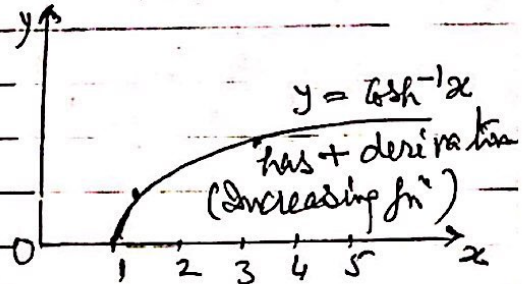 y
y = Cosh⁻¹x
has + derivative
(Increasing fnⁿ)
0 1 2 3 4 5 x